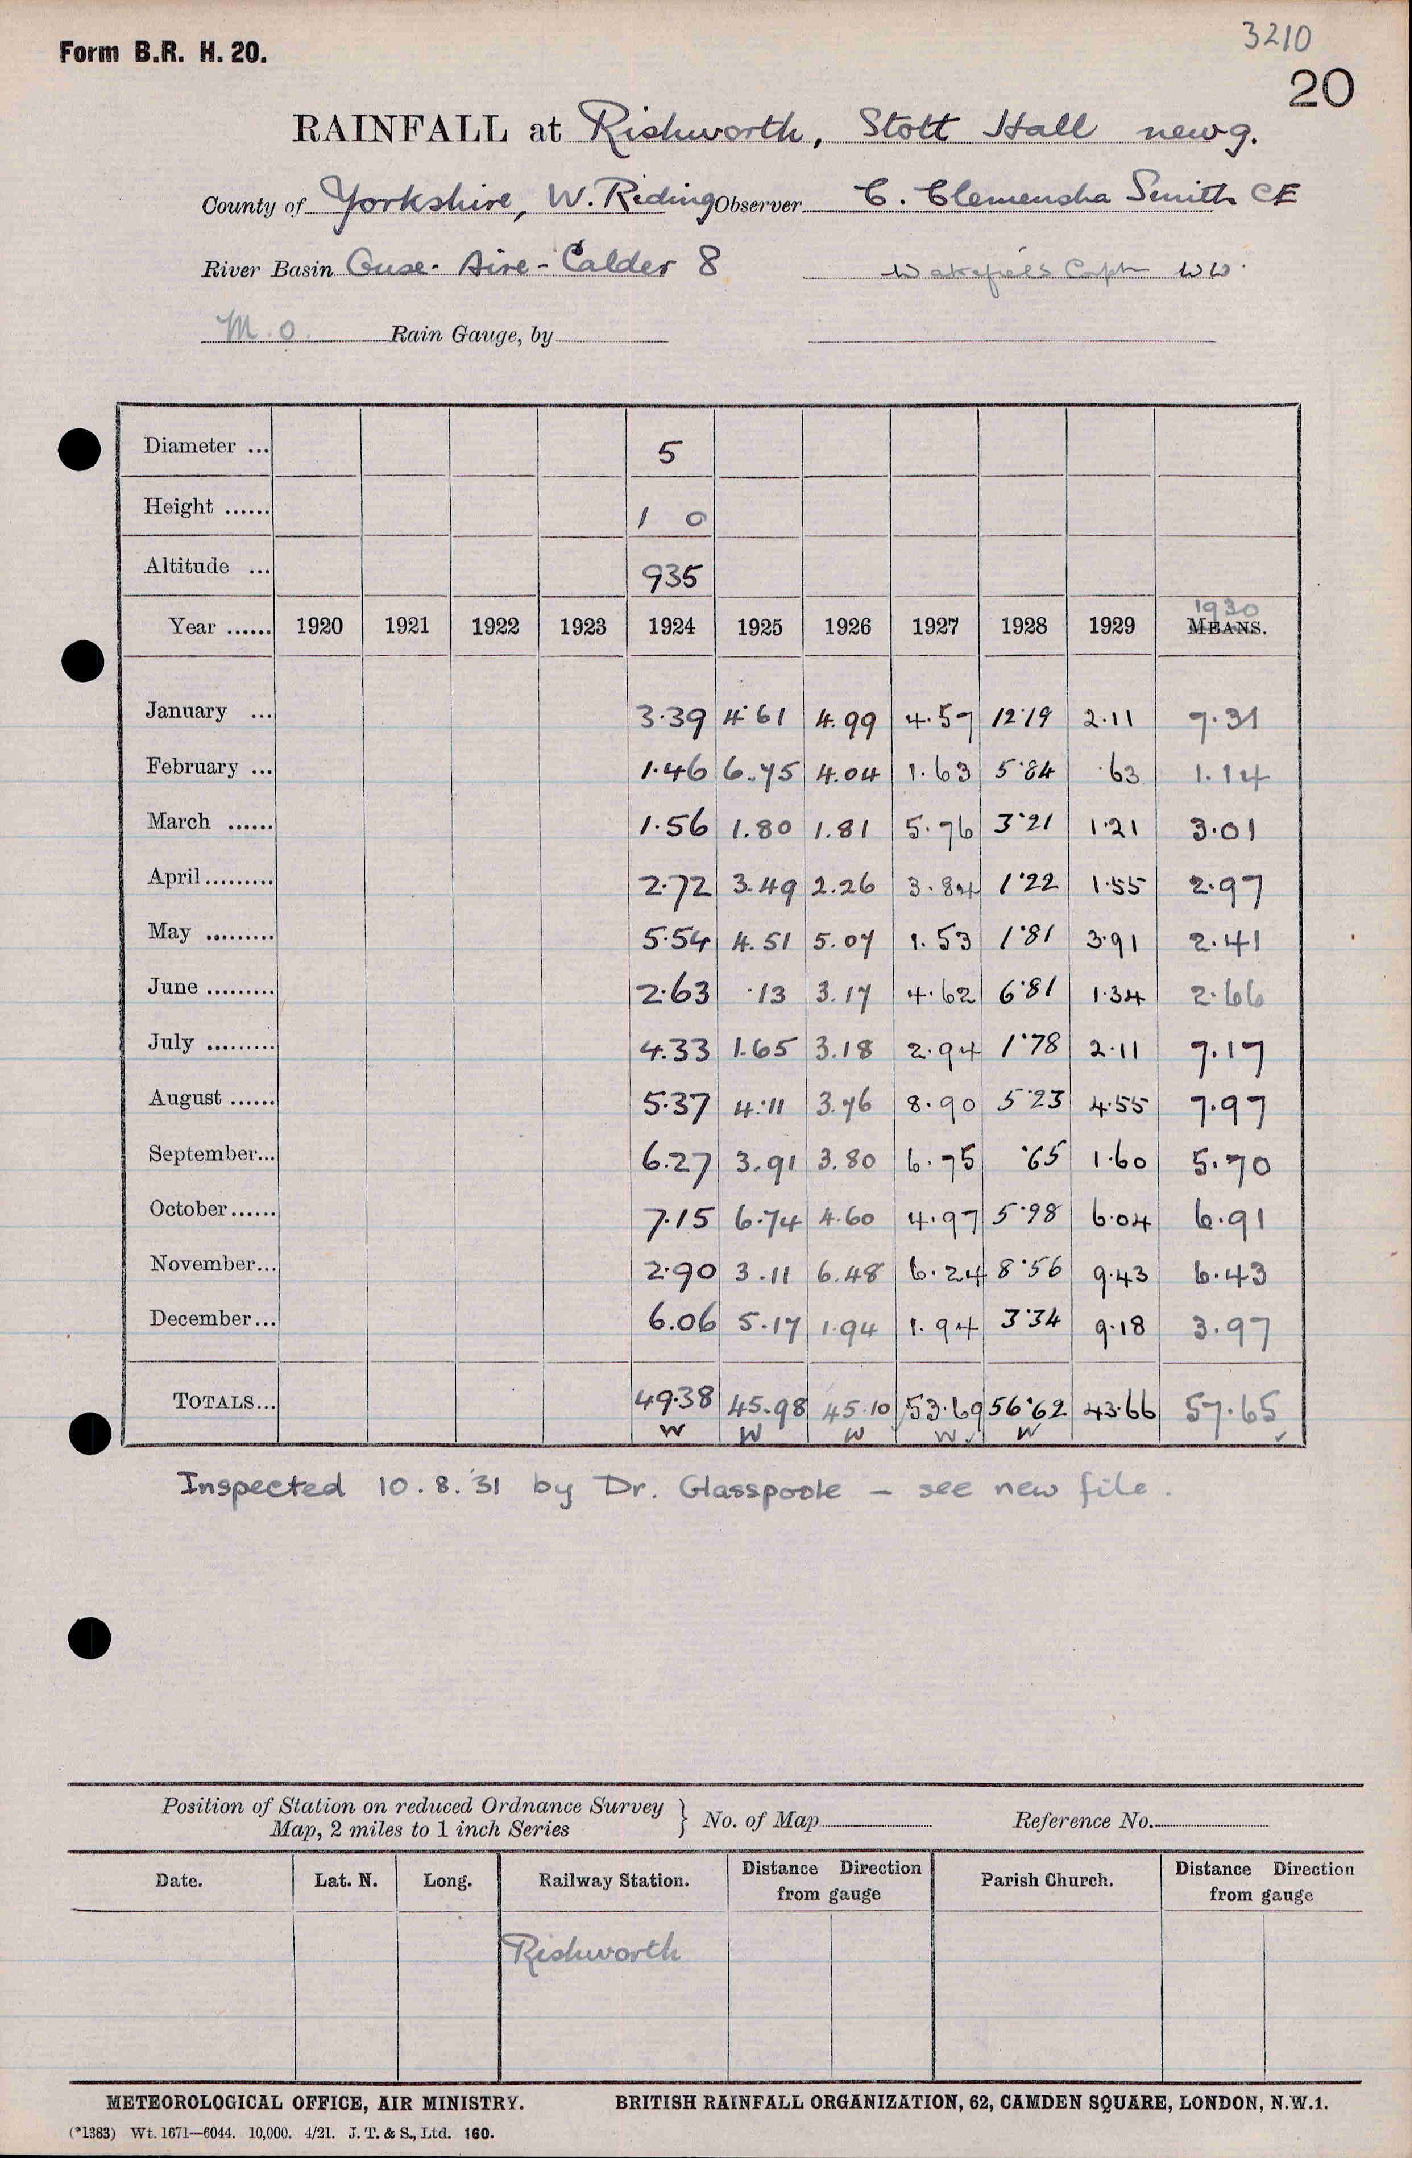 3210
Form B.R. H. 20.
20
RAINFALL at Rishworth, Stott Hall new g.
County of Yorkshire, W. Riding Observer C. Clemensha Smith CE
River Basin Ouse - Aire - Calder 8 Wakefield Corptn WW.
M.O. Rain Gauge, by
Diameter ... 5
Height ...... 1 0
Altitude ... 935
1930
Year ...... 1920 1921 1922 1923 1924 1925 1926 1927 1928 1929 MEANS.
January ... 3.39 4.61 4.99 4.57 12.19 2.11 7.31
February ... 1.46 6.75 4.04 1.63 5.84 .63 1.14
March ...... 1.56 1.80 1.81 5.76 3.21 1.21 3.01
April ......... 2.72 3.49 2.26 3.84 1.22 1.55 2.97
May ......... 5.54 4.51 5.07 1.53 1.81 3.91 2.41
June ......... 2.63 .13 3.17 4.62 6.81 1.34 2.66
July ......... 4.33 1.65 3.18 2.94 1.78 2.11 7.17
August ...... 5.37 4.11 3.76 8.90 5.23 4.55 7.97
September... 6.27 3.91 3.80 6.75 .65 1.60 5.70
October ...... 7.15 6.74 4.60 4.97 5.98 6.04 6.91
November... 2.90 3.11 6.48 6.24 8.56 9.43 6.43
December... 6.06 5.17 1.94 1.94 3.34 9.18 3.97
TOTALS... 49.38 45.98 45.10 53.69 56.62 43.66 57.65
W W W W ✓ W ✓
Inspected 10.8.31 by Dr. Glasspoole – see new file.
Position of Station on reduced Ordnance Survey
Map, 2 miles to 1 inch Series } No. of Map Reference No.
Date. Lat. N. Long. Railway Station. Distance Direction from gauge Parish Church. Distance Direction from gauge
Rishworth
METEOROLOGICAL OFFICE, AIR MINISTRY. BRITISH RAINFALL ORGANIZATION, 62, CAMDEN SQUARE, LONDON, N.W.1.
(*1383) Wt. 1671—6044. 10,000. 4/21. J. T. & S., Ltd. 160.